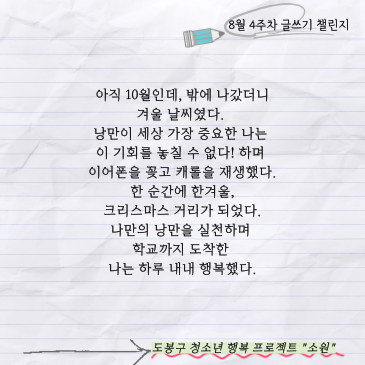 8월 4주차 글쓰기 챌린지
아직 10월인데, 밖에 나갔더니
겨울 날씨였다.
낭만이 세상 가장 중요한 나는
이 기회를 놓칠 수 없다! 하며
이어폰을 꽂고 캐롤을 재생했다.
한 순간에 한겨울,
크리스마스 거리가 되었다.
나만의 낭만을 실천하며
학교까지 도착한
나는 하루 내내 행복했다.
도봉구 청소년 행복 프로젝트 "소원"